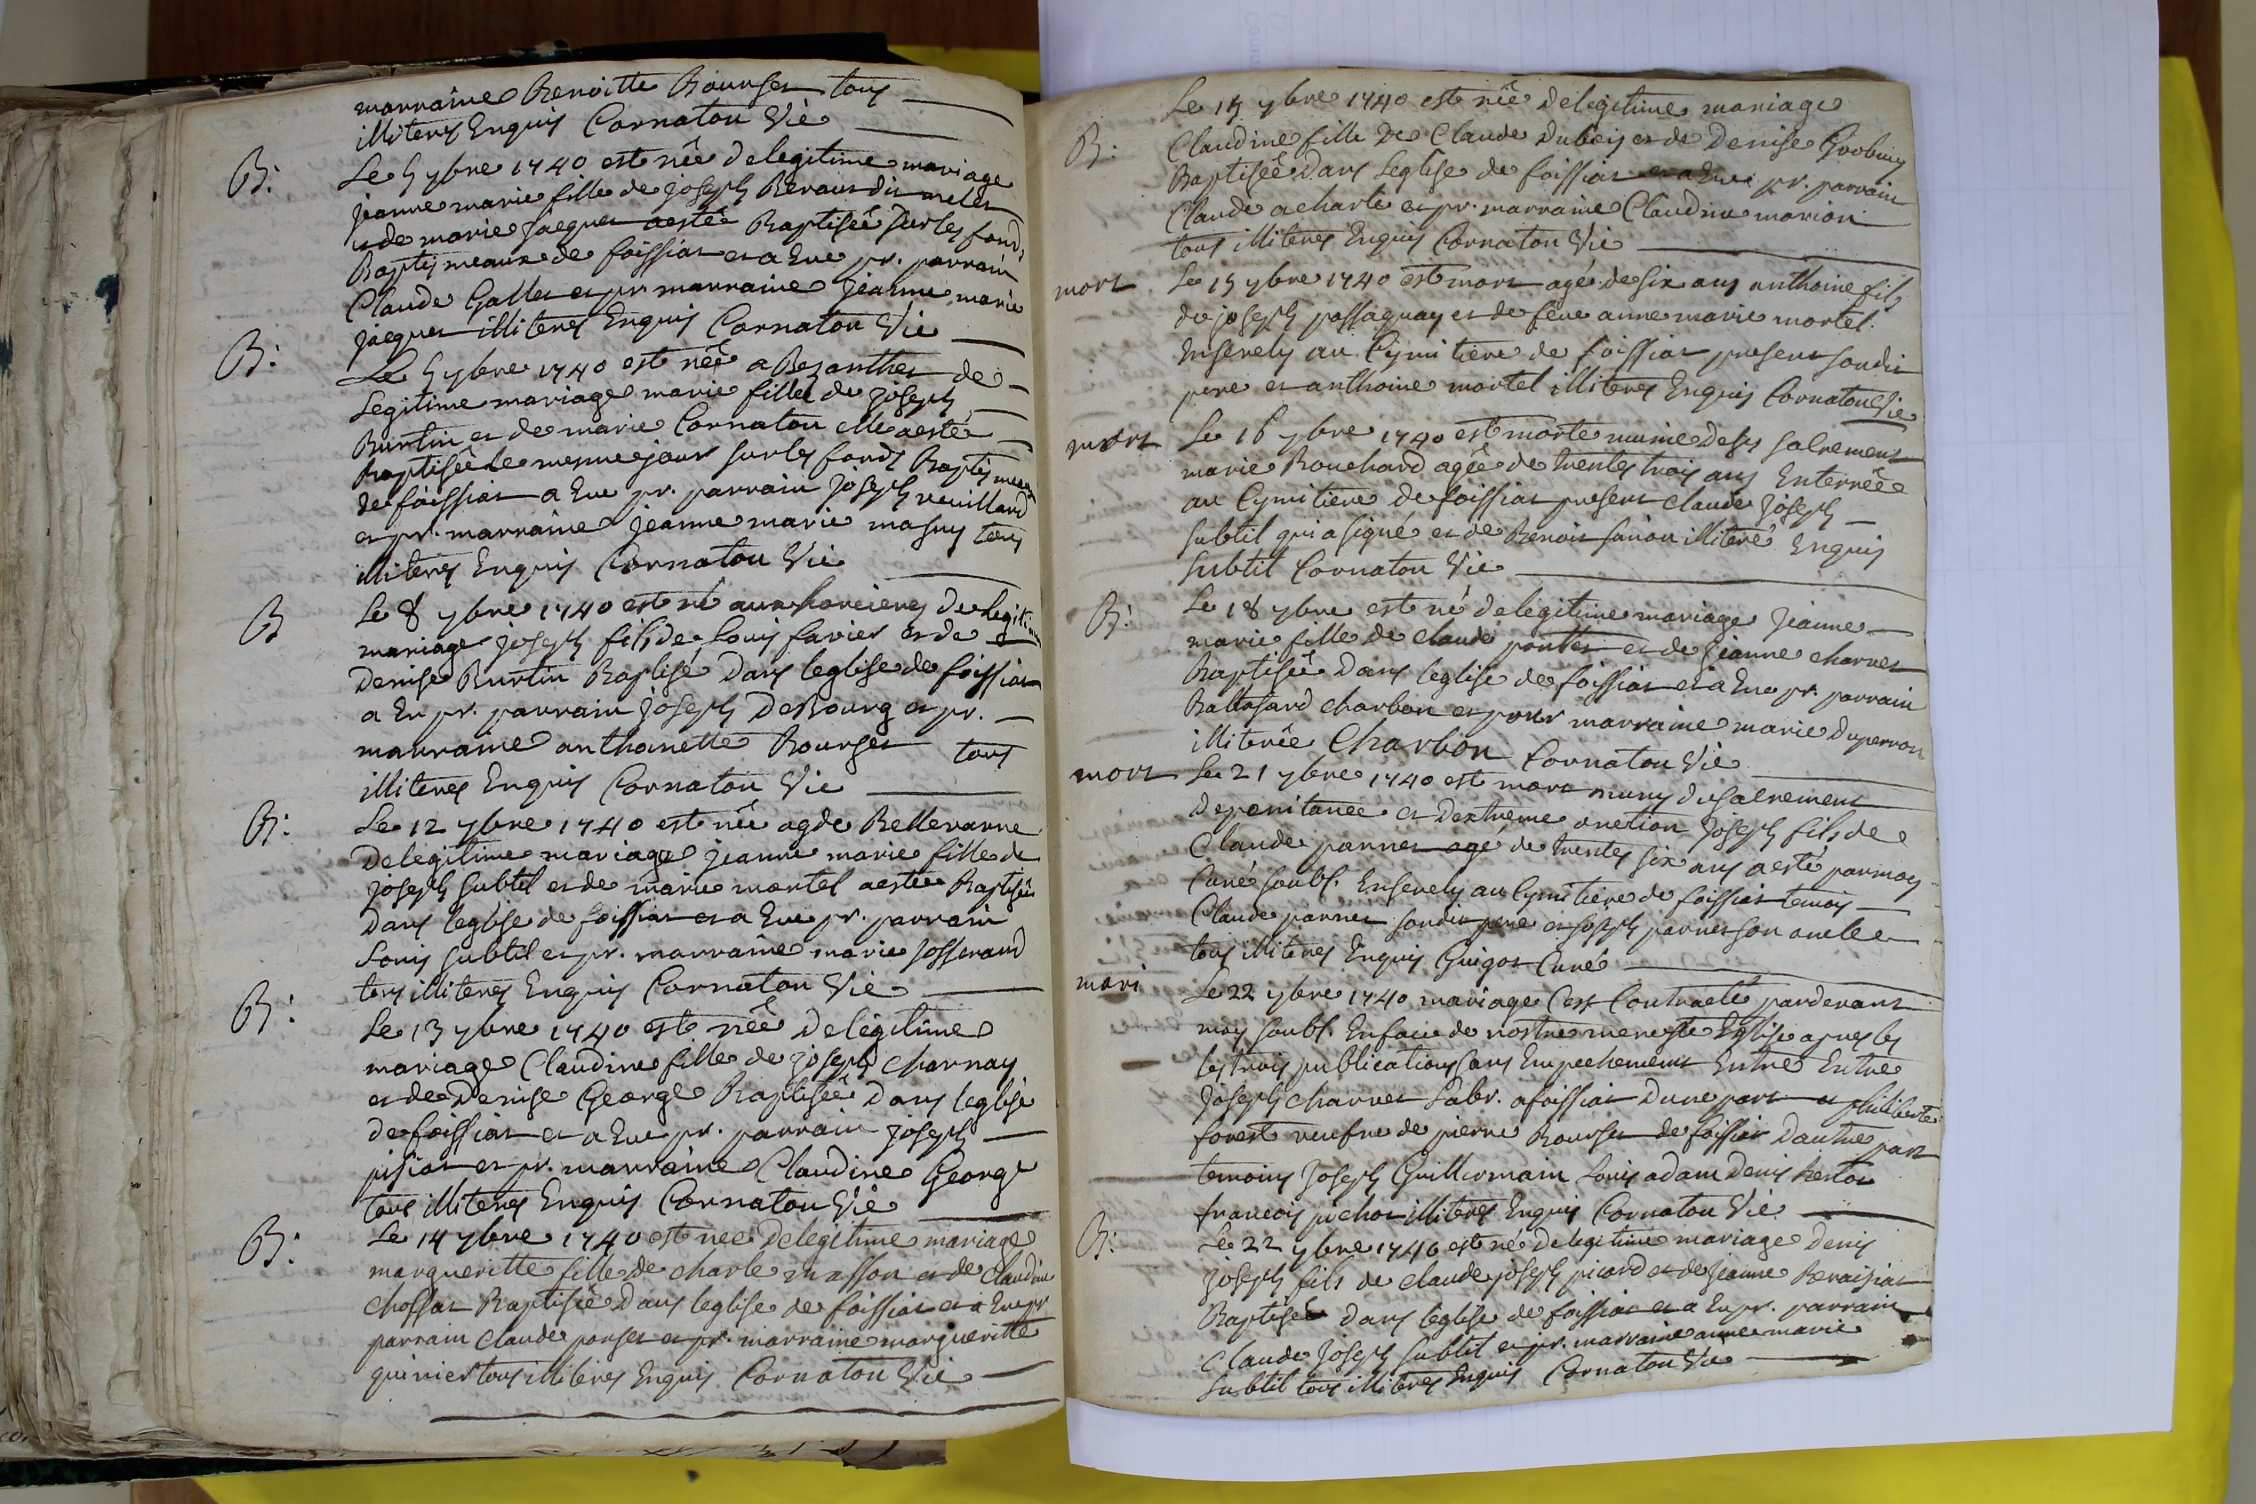 marraine Benoitte Bourges tous
illiteres Enquis Cornaton Vic
B: Le 5 7bre 1740 est née de legitime mariage
jeanne marie fille de joseph Beraud dit
et de marie jaques aestée Baptisée sur les fonds
Baptismeaux de foissiat et a Eue pr. parrain
Claude Gallet et pr. marraine jeanne marie
jaques illiteres Enquis Cornaton Vic
B: Le 5 7bre 1740 est née a Bezanthes de
Legitime mariage marie fille de joseph
Burtin et de marie Cornaton elle aesté
Baptisée le mesme jour sur les fonds Baptismeaux
de foissiat a Eue pr. parrain joseph veuillard
et pr. marraine jeanne marie masuy tous
illiteres Enquis Cornaton Vic
B Le 8 7bre 1740 est né de legitime
mariage joseph fils de Louis favier et de
Denise Burtin Baptisé Dans leglise de foissiat
a Eu pr. parrain joseph DeBourg et pr.
marraine anthoinette Bourges tous
illiteres Enquis Cornaton Vic
B: Le 12 7bre 1740 est née Bellevarne
De legitime mariage jeanne marie fille de
joseph Subtil et de marie mortel aestée Baptisée
Dans leglise de foissiat et a Eue pr. parrain
Louis Subtil et pr. marraine marie josserand
tous illiteres Enquis Cornaton Vic
B: Le 13 7bre 1740 est née De legitime
mariage Claudine fille de joseph charnay
et de Denise George Baptisée Dans leglise
de foissiat et a Eue pr. parrain joseph
pisiat et pr. marraine Claudine George
tous illiteres Enquis Cornaton Vic
B: Le 14 7bre 1740 est nee De legitime mariage
margueritte fille de charle masson et de Claudine
chossat Baptisée Dans leglise de foissiat et a Eue pr
parrain claude ponset et pr. marraine margueritte
quinier tous illiteres Enquis Cornaton Vic
Le 15 7bre 1740 est née de legitime mariage
B: Claudine fille De Claude Dubois et de Denise
Baptisée Dans Leglise de foissiat et a Eue pr. parrain
Claude acharle et pr. marraine Claudine marion
tous illiteres Enquis Cornaton Vic
mort Le 15 7bre 1740 est mort agé de six ans anthoine fils
de joseph passaquay et de feue anne marie mortel
Ensevely au Cymitiere de foissiat present sondit
pere et anthoine mortel illiteres Enquis Cornaton Vic
mort Le 16 7bre 1740 est morte munie de ses sacremens
marie Bouchard agée de trentes trois ans Enterrée
au Cymitiere de foissiat present claude joseph
Subtil qui a signé et de Benoit illiteré Enquis
Subtil Cornaton Vic
B: Le 18 7bre est né de legitime mariage jeanne
marie fille de claude ponthet et de jeanne charvet
Baptisée Dans leglise de foissiat et a Eue pr. parrain
Baltasard charbon et pour marraine marie Duperron
illiterée Charbon Cornaton Vic
mort Le 21 7bre 1740 est mort muny du sacrement
De penitance et Dextreme onction joseph fils de
Claude pannet agé de trentes six ans aesté par moy
Curé soubs. Ensevely au Cymitiere de foissiat temoins
Claude pannet sondit pere et joseph pannet son oncle
tous illiteres Enquis Guigot Curé
mari Le 22 7bre 1740 mariage cest Contracté pardevant
moy soubs. En face de nostre mere ste Eglise apres les
les trois publications sans Empechement Entre Entre
joseph charvet Labr. a foissiat Dune part et philiberte
forest veufue de pierre Bourges de foissiat Dautre part
temoins joseph Guillermain Louis adam Denis
francois pichot illiteres Enquis Cornaton Vic
B: Le 22 7bre 1740 est né De legitime mariage Denis
joseph fils de claude joseph picard et de jeanne Beraisiat
Baptisé Dans leglise de foissiat et a Eu pr. parrain
Claude joseph Subtil et pr. marraine anne marie
Subtil tous illiteres Enquis Cornaton Vic